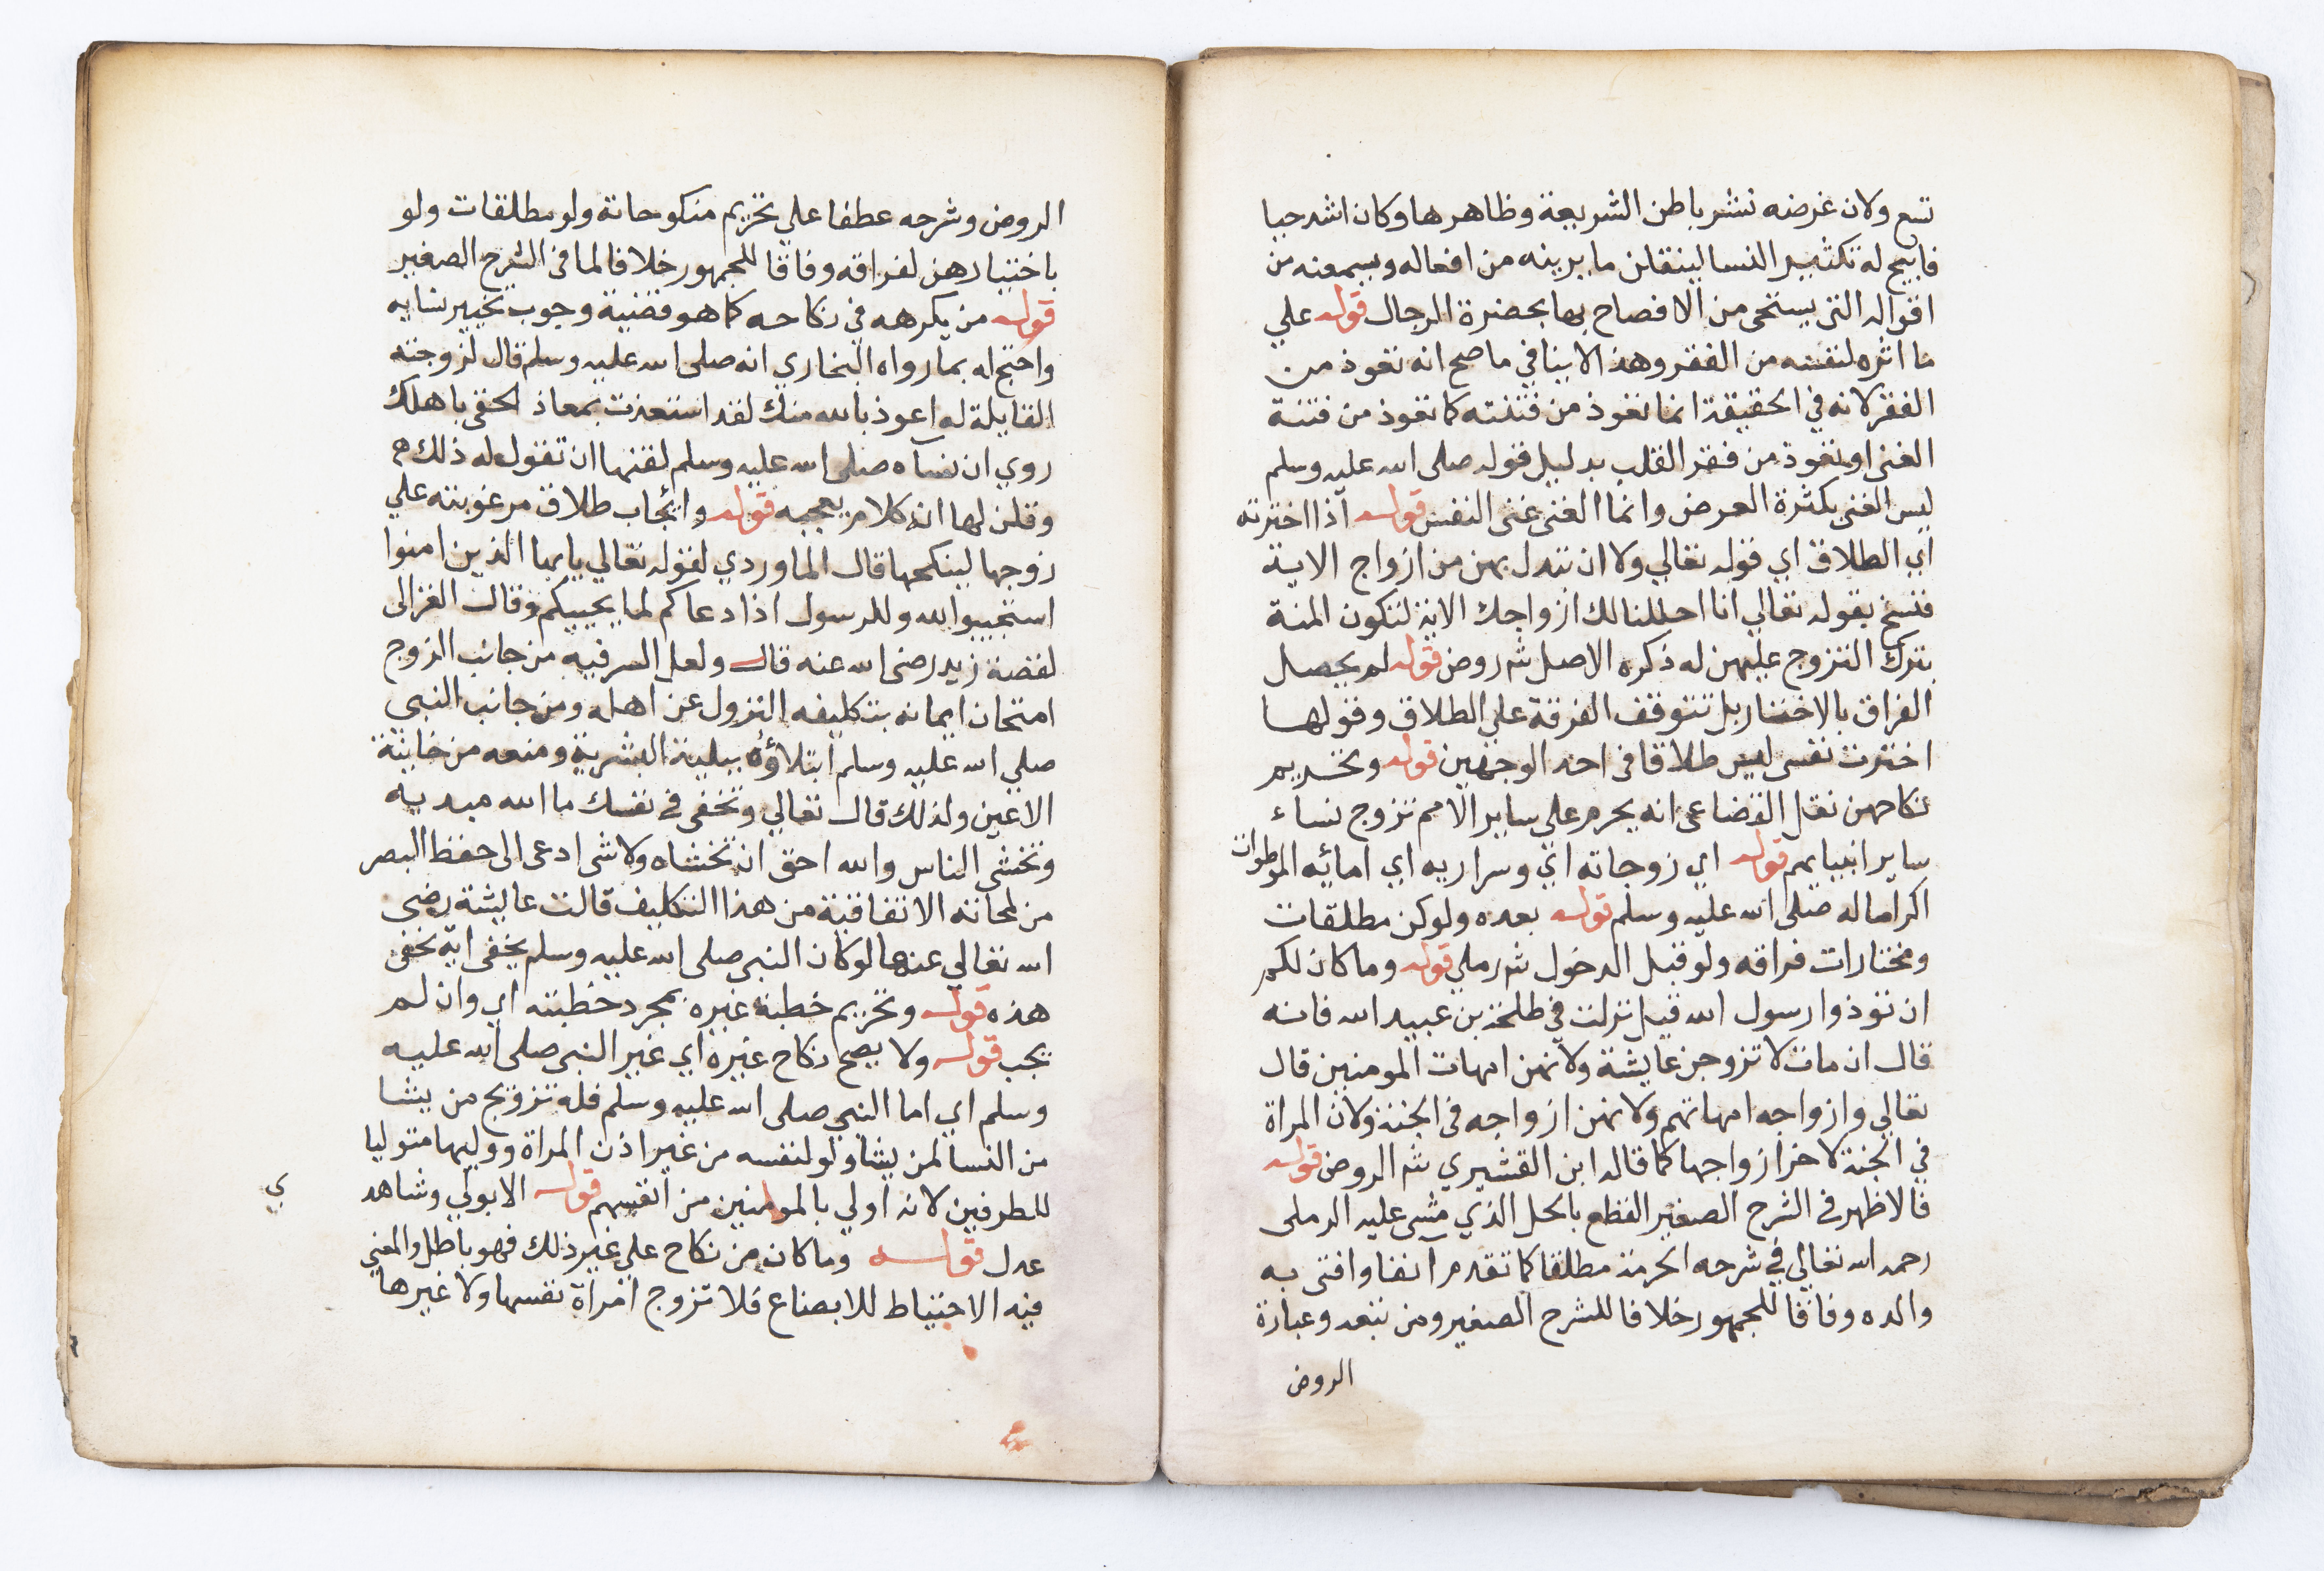 تسع ولان غرضه نشر باطن الشريعة وظاهرها وكان اشد حيا
فابيح له تكثير النسا لينقلن ما يرينه من افعاله ويسمعنه من
اقواله التى يستحى من الافصاح بها بحضرة الرجال قوله علي
ما اثره لنفسه من الفقر وهذا لا ينافي ما صح انه تعوذ من
الفقر لانه في الحقيقة انما تعوذ من فتنته كما تعوذ من فتنة
الغنى او تعوذ من فقر القلب بدليل قوله صلى الله عليه وسلم
ليس الغنى بكثرة العرض وانما الغنى غنى النفس قوله اذا اخترته
اي الطلاق اي قوله تعالي ولا ان تبدل بهن من ازواج الاية
فنسخ بقوله تعالي انا احللنا لك ازواجك الاية لتكون المنة
بترك التزوج عليهن له ذكره الاصل شه روض قوله لم يحصل
الفراق بالاختيار بل تتوقف الفرقة علي الطلاق وقولها
اخترت نفسى ليس طلاقا فى احد الوجهين قوله وتحريم
نكاحهن نقل القضاعى انه يحرم على ساير الامم تزوج نساء
ساير انبيايهم قوله اي زوجاته اي وسراريه اي امائه الموطوات
اكراما له صلى الله عليه وسلم قوله بعده ولو كن مطلقات
ومختارات فراقه ولو قبل الدخول شه رملي قوله وما كان لكم
ان توذوا رسول الله قيل نزلت في طلحة بن عبيد الله فانه
قال ان مات لا تزوجن عايشة ولانهن امهات المومنين قال
تعالي وازواجه امهاتهم ولانهن ازواجه فى الجنة ولان المراة
في الجنة لاخر ازواجها كما قاله ابن القشيري شه الروض قوله
فالاظهر فى الشرح الصغير القطع بالحل الذي مشى عليه الرملى
رحمه الله تعالي في شرحه الحرمة مطلقا كما تقدم انفا وافتى به
والده وفاقا للجمهور خلافا للشرح الصغير ومن تبعه وعبارة
الروض
الروض وشرحه عطفا علي تحريم منكوحاته ولو مطلقات ولو
باختيارهن لفراقه وفاقا للجمهور خلافا لما فى الشرح الصغير
قوله من يكرهه في نكاحه كما هو قضية وجوب تخيير نسايه
واحتج له بما رواه البخاري انه صلى الله عليه وسلم قال لزوجته
القايلة له اعوذ بالله منك لقد استعذت بمعاذ الحقى باهلك
روي ان نسآه صلى الله عليه وسلم لقنها ان تقول له ذلك
وقلن لها انه كلام يعجبه قوله وايجاب طلاق مرغوبته علي
زوجها لينكحها قال الماوردي لقوله تعالي يا يها الذين امنوا
استجيبوا لله وللرسول اذا دعاكم لما يحييكم وقال الغزالى
لقصة زيد رضى الله عنه قال ولعل السر فيه من جانب الزوج
امتحان ايمانه بتكليفه النزول عن اهله ومن جانب النبي
صلي الله عليه وسلم ابتلاؤه ببلية البشرية ومنعه من خاينة
الاعين ولذلك قال تعالي وتخفى فى نفسك ما الله مبديه
وتخشى الناس والله احق ان تخشاه ولا شى ادعى الى حفظ البصر
من لمحاته الاتفاقية من هذا التكليف قالت عايشة رضى
الله تعالي عنها لو كان النبى صلى الله عليه وسلم يخفى اية تخفى
هذه قوله وتحريم خطبة غيره بمجرد خطبته اي وان لم
يجب قوله ولا يصح نكاح غيره اي غير النبى صلى الله عليه
وسلم اي اما النبى صلى الله عليه وسلم فله تزويج من يشا
من النسا لمن يشا ولو لنفسه من غير اذن المراة ووليها متوليا
للطرفين لانه اولي بالمومنين من انفسهم قوله الابولي وشاهد
ي
عدل قوله وما كان من نكاح علي غير ذلك فهو باطل والمعني
فيه الاحتياط للابضاع فلا تزوج امراة نفسها ولا غيرها